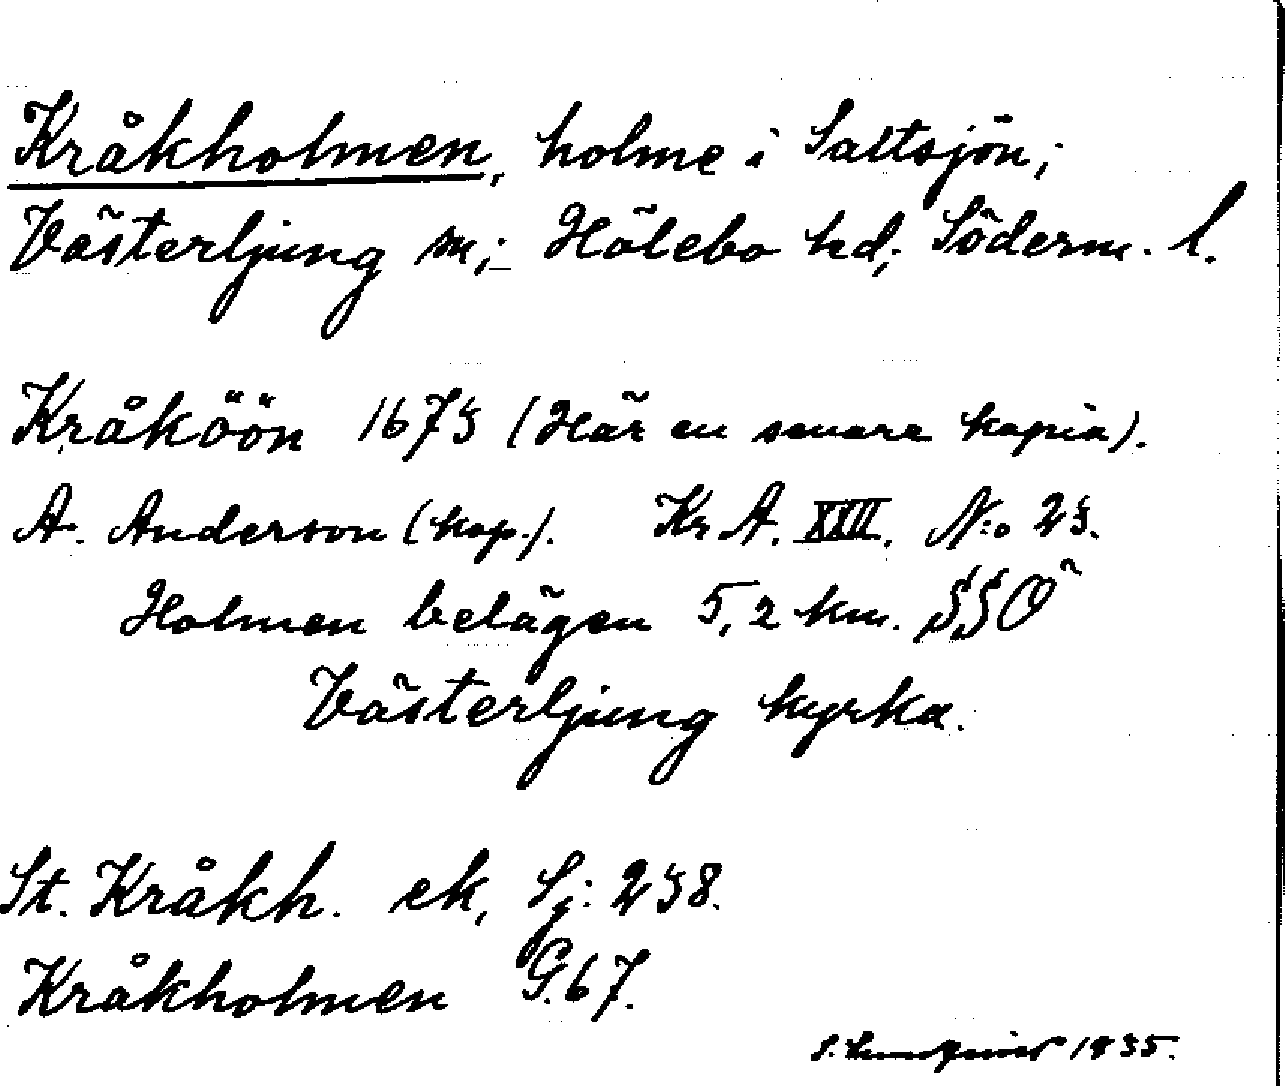 Kråkholmen, holme i Saltsjön;
Västerljung sn; Hölebo hd; Söderm. l.
Kråköön 1673 (Här en senare kopia).
A. Anderson (kop.). Kr. A. XXII. N:o 23.
Holmen belägen 5,2 km. SSO
Västerljung kyrka.
St. Kråkh. ek, Sj: 238.
Kråkholmen G. 67.
1935.